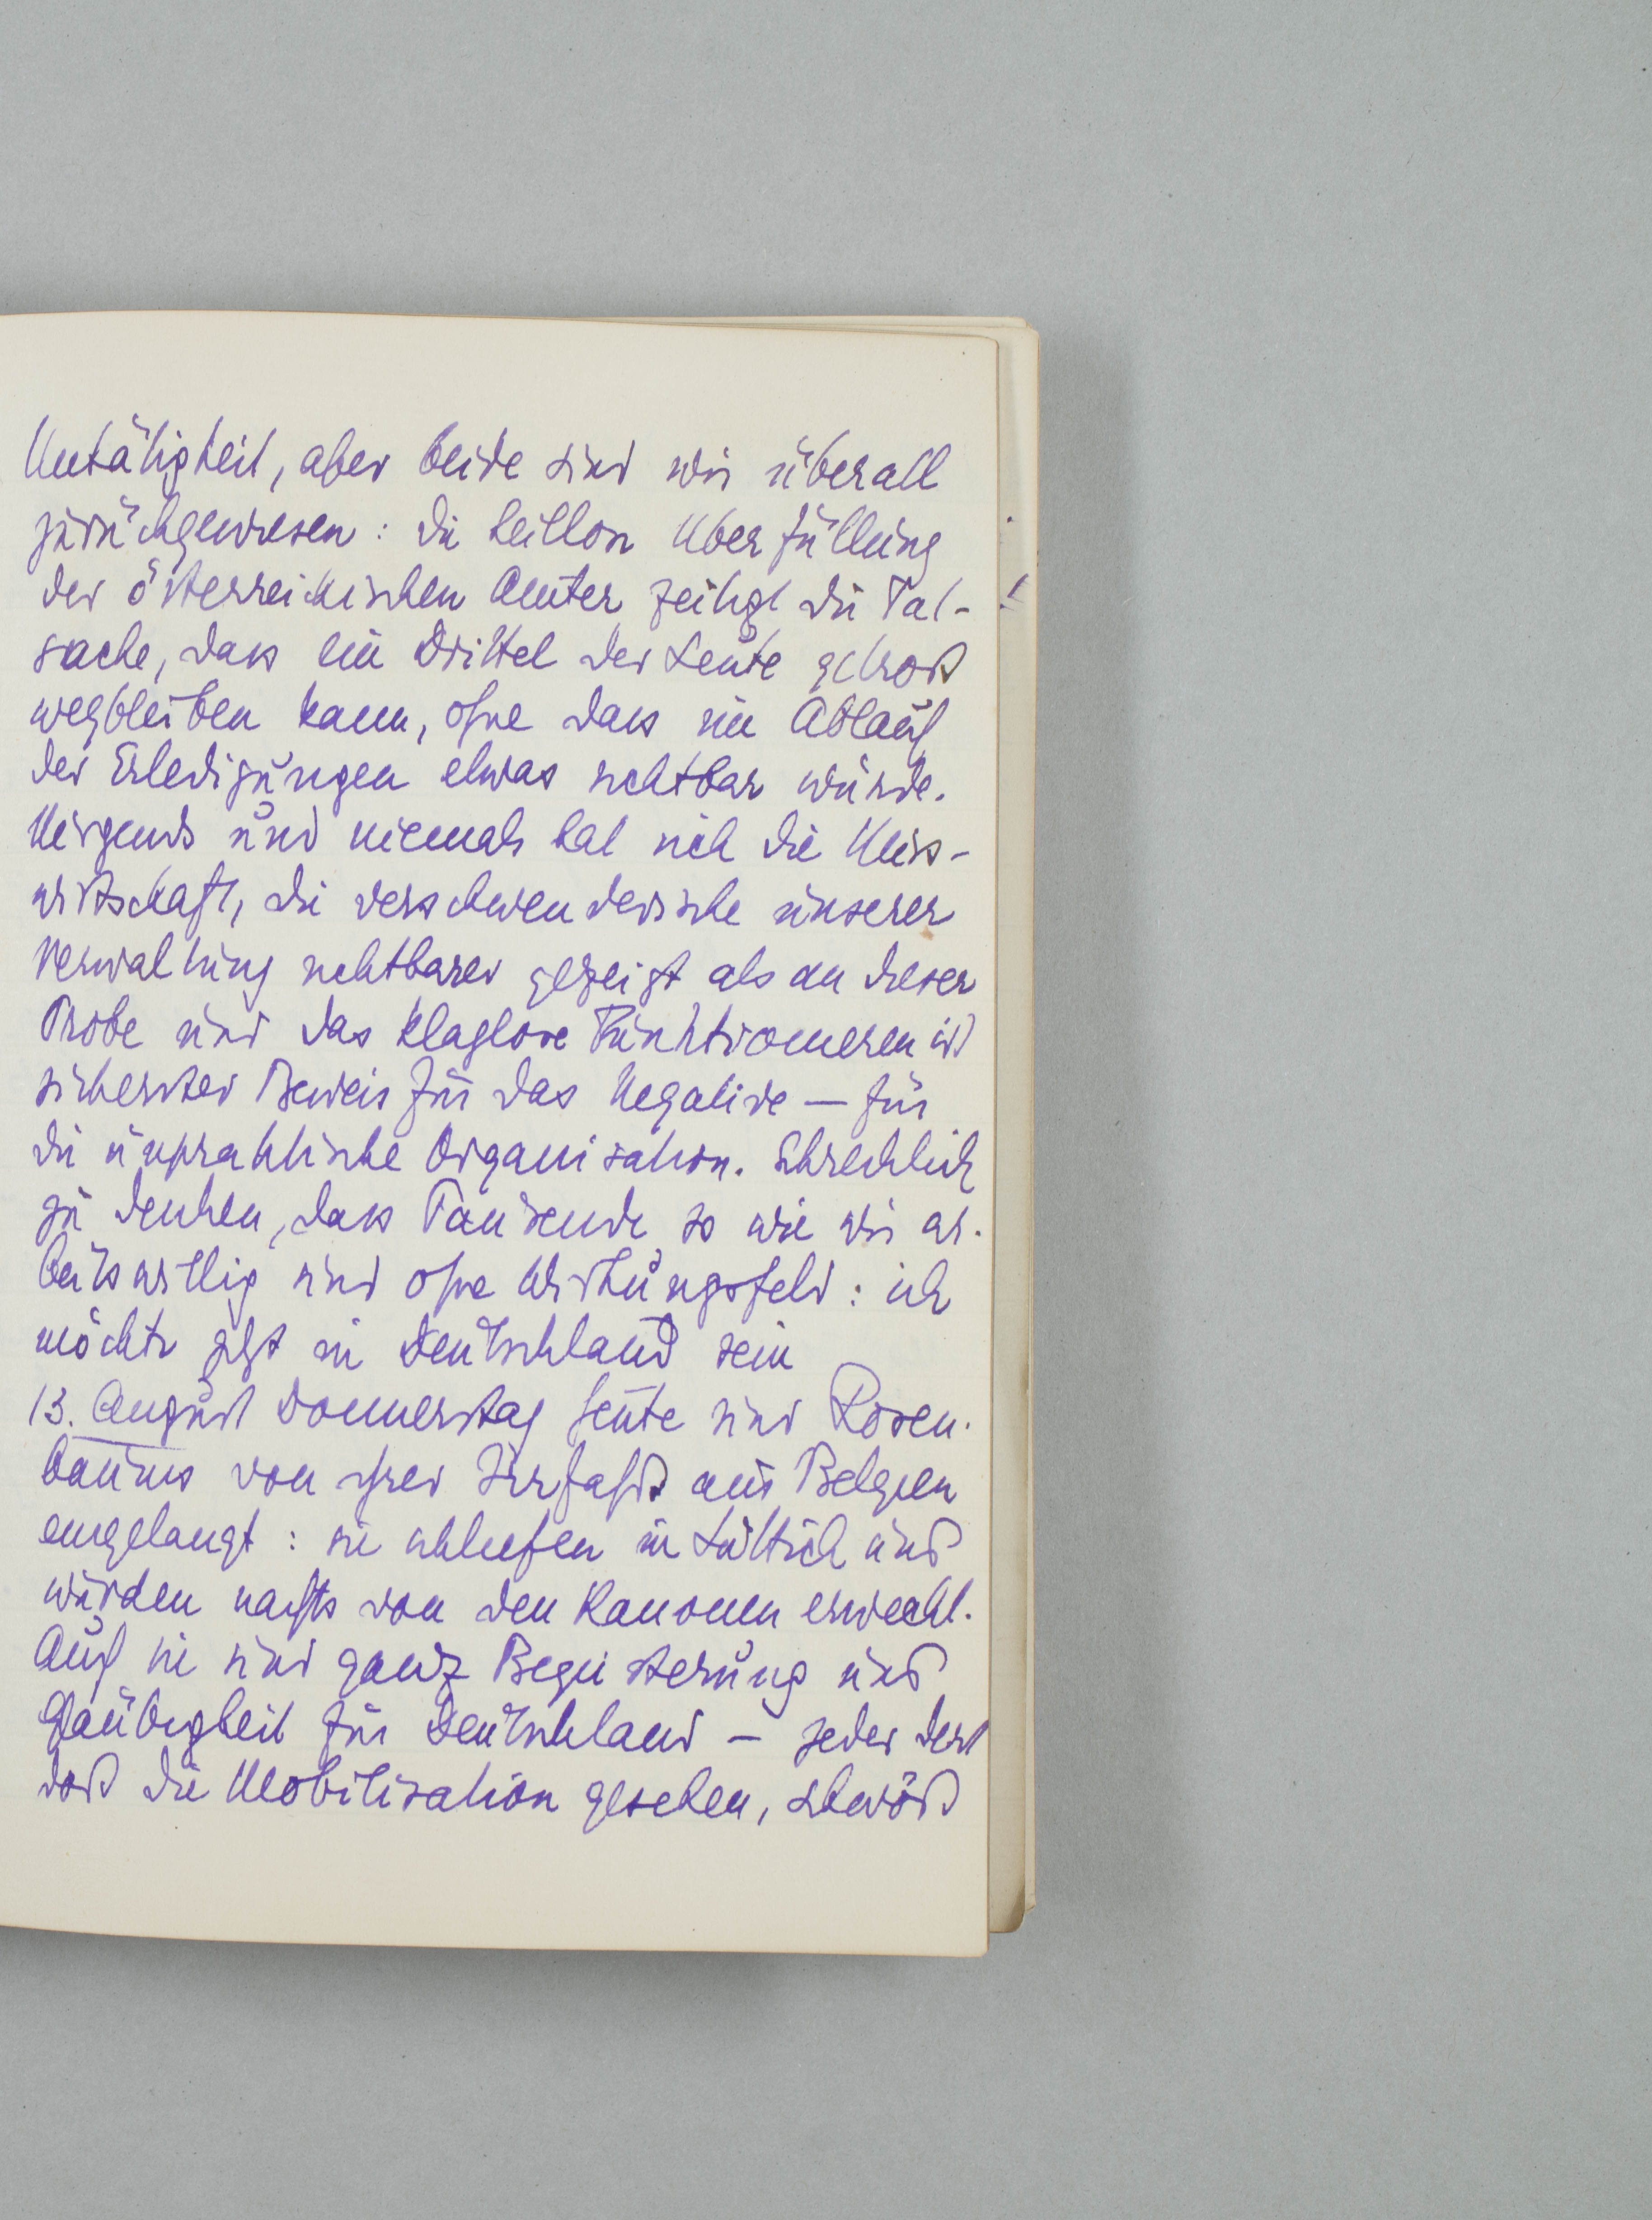 Untätigkeit, aber beide sind wir überall
zurückgewiesen: die heillose Überfüllung
der österreichischen Ämter zeitigt die Tat-
sache, dass ein Drittel der Leute getrost
wegbleiben kann, ohne dass im Ablauf
der Erledigungen etwas sichtbar würde.
Nirgends und niemals hat sich die Miss-
wirtschaft, die verschwenderische unserer
Verwaltung sichtbarer gezeigt als an dieser
Probe und das klaglose Funktionieren ist
sicherster Beweis für das Negative – für
die unpraktische Organisation. Schrecklich
zu denken, dass Tausende so wie wir ar-
beitswillig sind ohne Wirkungsfeld: ich
möchte jetzt in Deutschland sein
13. August Donnerstag heute sind Rosen-
baums von ihrer Irrfahrt aus Belgien
eingelangt: sie schliefen in Lüttich und
wurden nachts von den Kanonen erweckt.
Auch sie sind ganz Begeisterung und
Gläubigkeit für Deutschland – jeder der
dort die Mobilisation gesehen, schwört